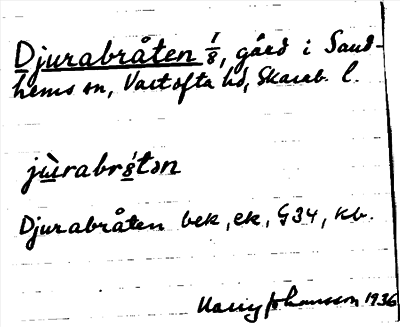 Djurabråten 1/8, gård i Sand-
hems sn, Vartofta hd, Skarab. l.
jùrabrǻtən
Djurabråten bek, ek, G34, kb.
Harry Johansson 1936